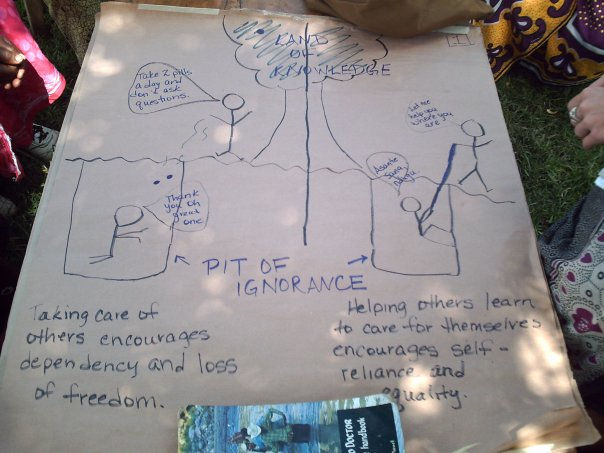 LAND
OF
KNOWLEDGE
Take 2 pills
a day and
don't ask
questions.
Let me
help you
where you
are
Thank
you oh
great
one
Asante
Sana
PIT OF
IGNORANCE
Taking care of
others encourages
dependency and loss
of freedom.
Helping others learn
to care for themselves
encourages self-
reliance and
equality.
DOCTOR
handbook